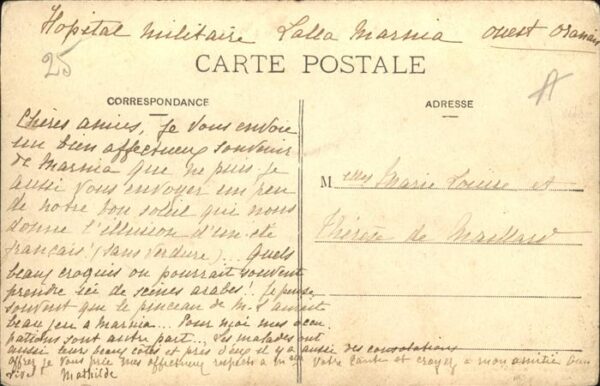 Hopital Militaire Lalla Marnia ouest oranais
25
CARTE POSTALE
CORRESPONDANCE
ADRESSE
Chères amies, je vous envoie
un bien affectueux souvenir
de Marnia que ne puis je
aussi vous envoyer un peu
de notre bon soleil qui nous
donne l'illusion d'un été
français! (sans verdure)... Quels
beaux croquis on pourrait souvent
prendre ici de scènes arabes! Je pense
souvent que le pinceau de M. L aurait
beau jeu à Marnia... Pour moi mes occu
pations sont autre part... Les malades ont
aussi leurs beaux côtés et près d'eux il y a aussi des consolations
offrez je vous prie mes affectueux respects à votre tante et croyez à mon amitié bien
Mathilde
M elles Marie Louise et
Thérèse de Maillard